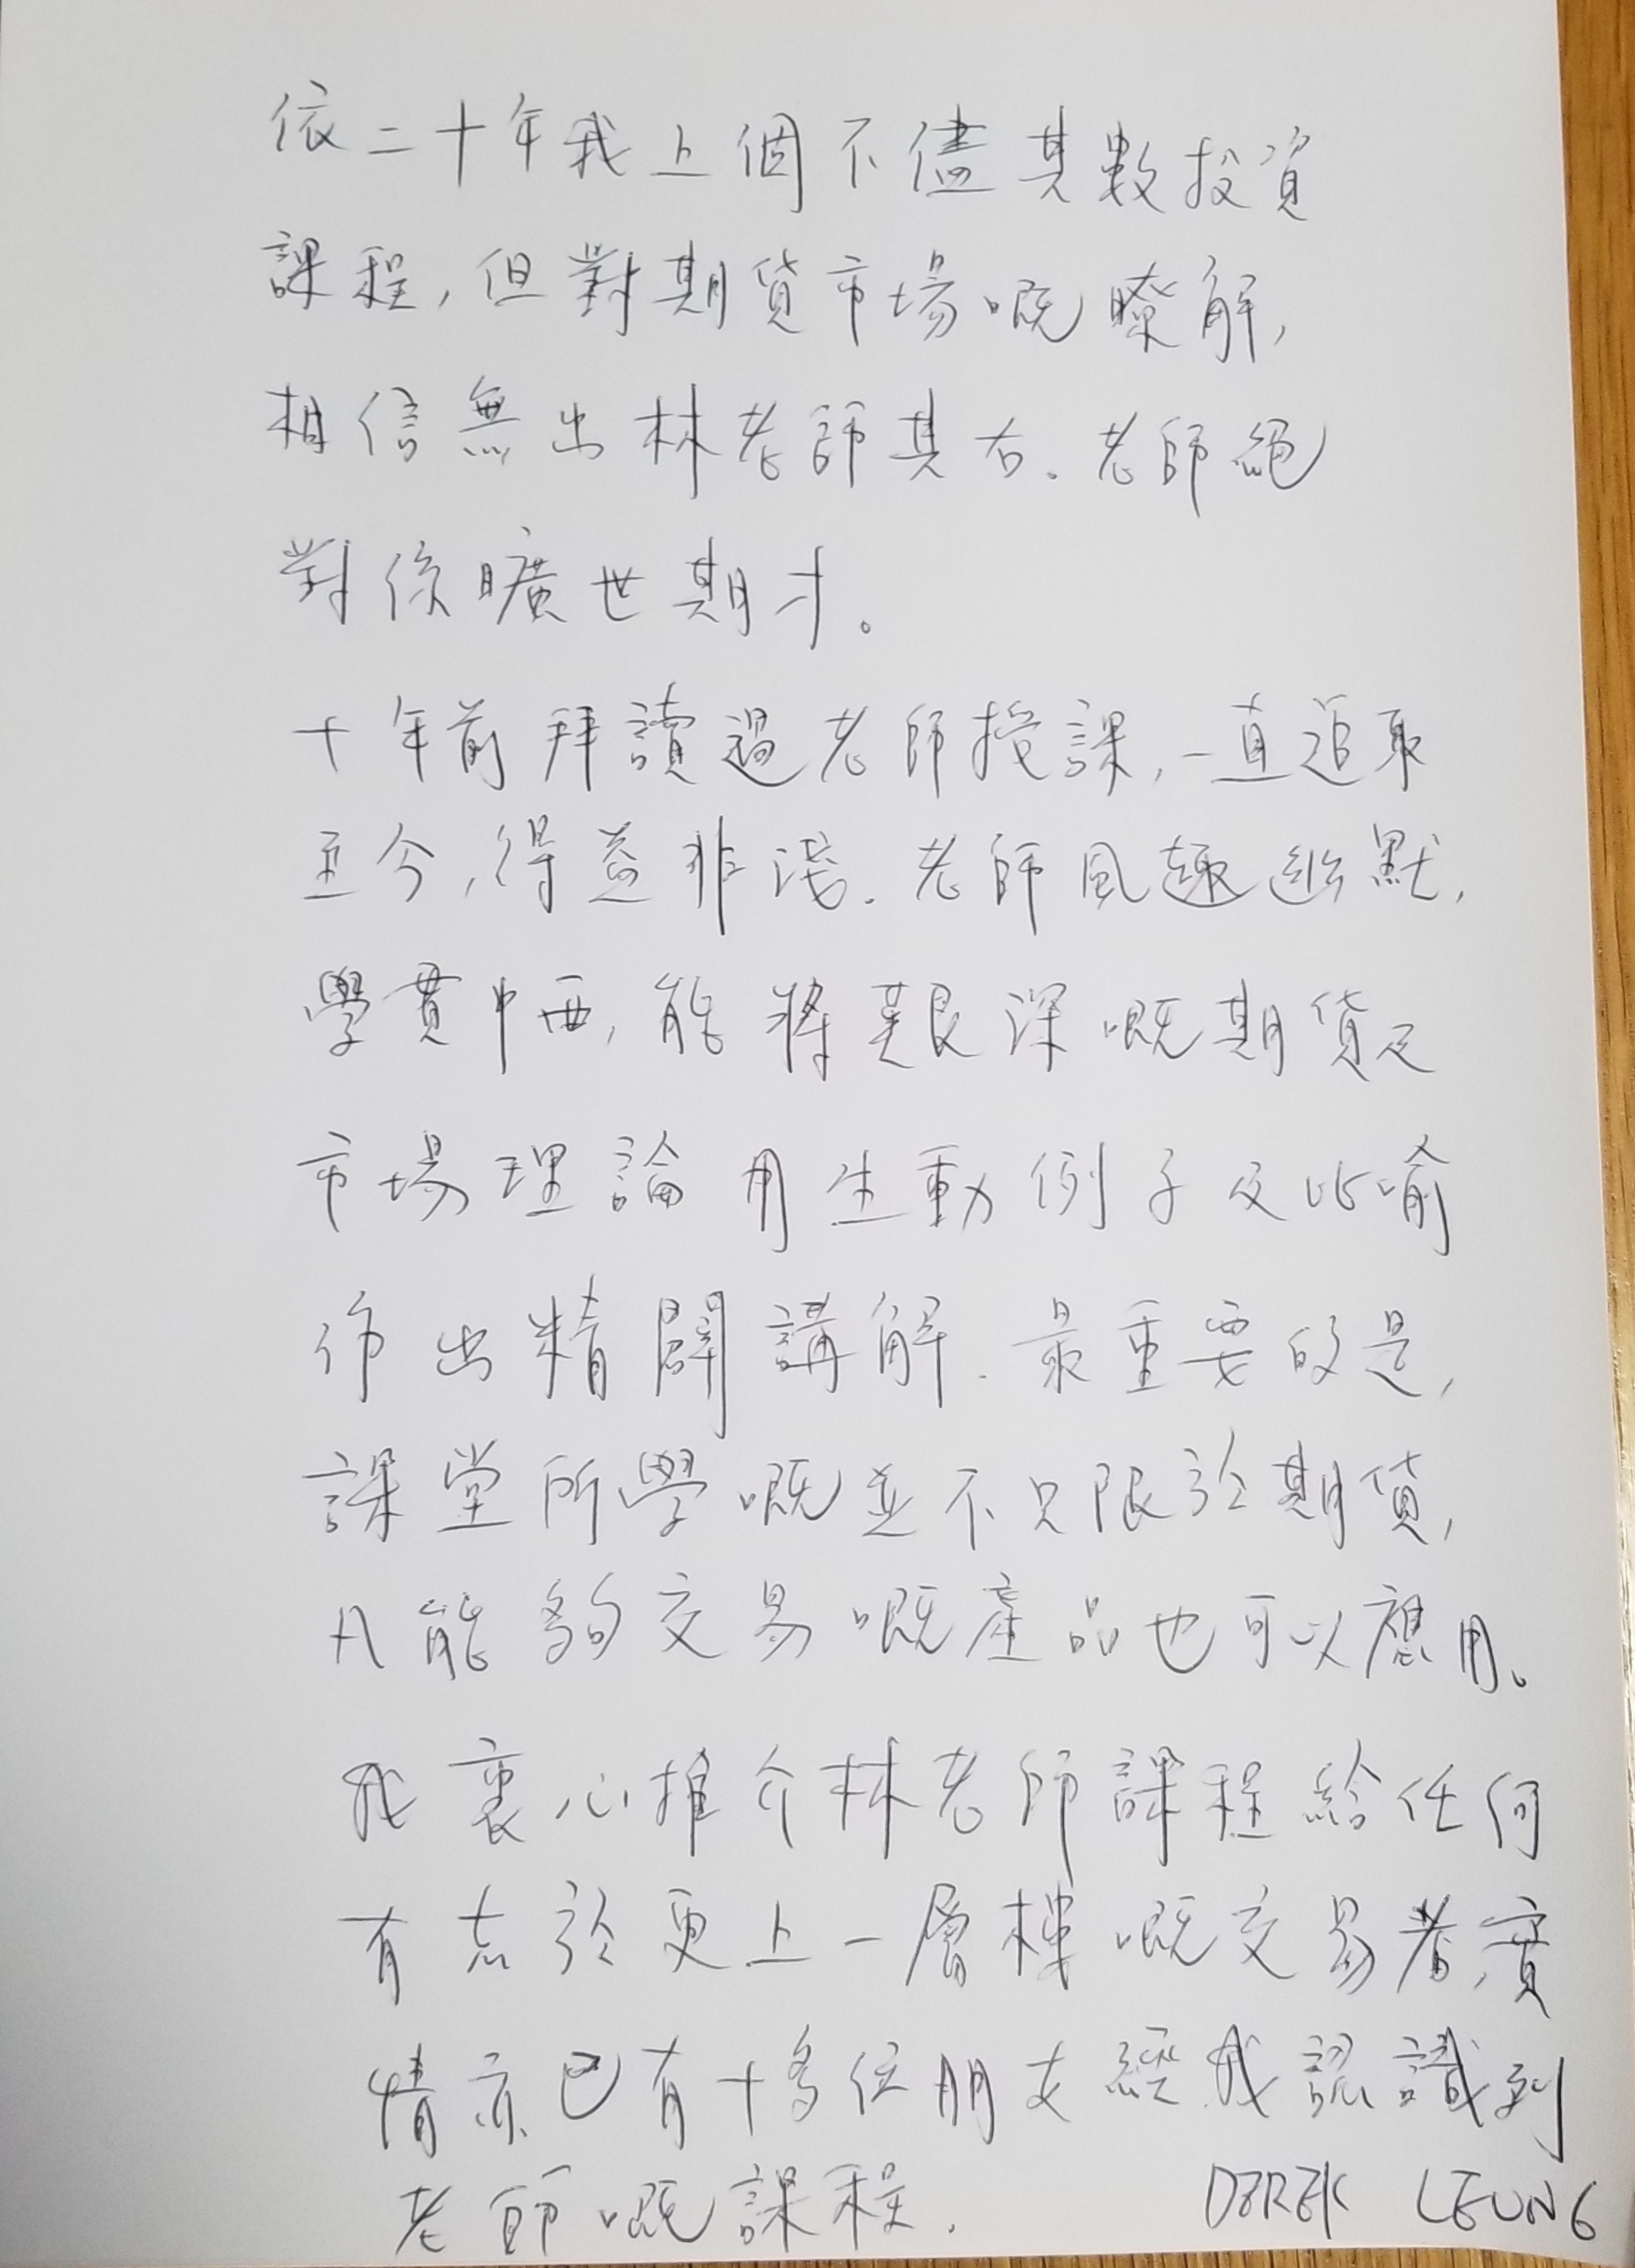 依二十年我上個不儘其數投資
課程,但對期貨市場嘅瞭解,
相信無出林老師其右。老師絕
對係曠世期才。
十年前拜讀過老師授課,一直追取
至今,得益非淺。老師風趣幽默,
學貫中西,能將艱深嘅期貨及
市場理論用生動例子及比喻
作出精闢講解。最重要的是,
課堂所學嘅並不只限於期貨,
凡能夠交易嘅產品也可以應用。
我衷心推介林老師課程給任何
有志於更上一層樓嘅交易者,實
情亦已有十多位朋友經我認識到
老師嘅課程。 DEREK LEUNG